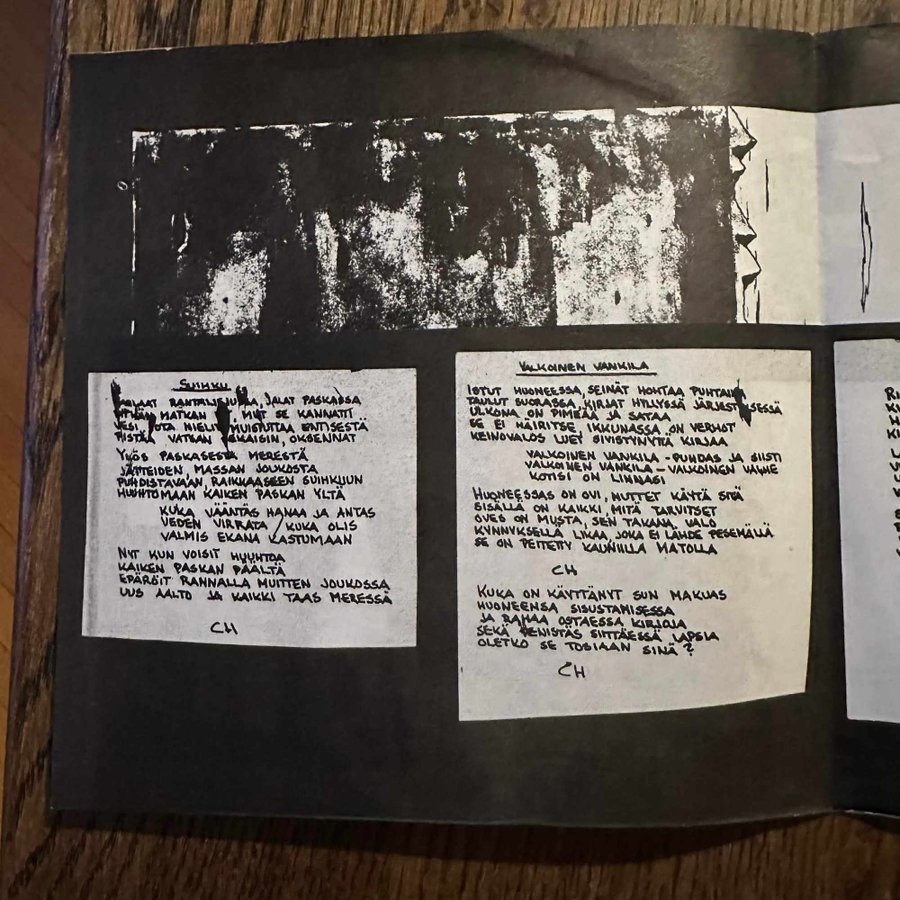 SUIHKU
RANTALIEJUSSA, JALAT PASKASSA
PITKÄN MATKAN MUT SE KANNATTI
VESI JOTA NIELIT MUISTUTTAA ENTISESTÄ
PISTÄÄ VATSAN SEKAISIN, OKSENNAT
YLÖS PASKASESTA MERESTÄ
JÄTTEIDEN, MASSAN JOUKOSTA
PUHDISTAVAAN, RAIKKAASEEN SUIHKUUN
HUUHTOMAAN KAIKEN PASKAN YLTÄ
KUKA VÄÄNTÄS HANAA JA ANTAS
VEDEN VIRRATA / KUKA OLIS
VALMIS EKANA KASTUMAAN
NYT KUN VOISIT HUUHTOA
KAIKEN PASKAN PÄÄLTÄ
EPÄRÖIT RANNALLA MUITTEN JOUKOSSA
UUS AALTO JA KAIKKI TAAS MERESSÄ
CH
VALKOINEN VANKILA
ISTUT HUONEESSA, SEINÄT HOHTAA PUHTAINA
TAULUT SUORASSA, KIRJAT HYLLYSSÄ JÄRJESTYKSESSÄ
ULKONA ON PIMEÄÄ JA SATAA
SE EI HÄIRITSE, IKKUNASSA ON VERHOT
KEINOVALOS LUET SIVISTYNYTTÄ KIRJAA
VALKOINEN VANKILA - PUHDAS JA SIISTI
VALKOINEN VANKILA - VALKOINEN VAIHE
KOTISI ON LINNASI
HUONEESSAS ON OVI, MUTTET KÄYTÄ SITÄ
SISÄLLÄ ON KAIKKI, MITÄ TARVITSET
OVES ON MUSTA, SEN TAKANA VALO
KYNNYKSELLÄ LIKAA, JOKA EI LÄHDE PESEMÄLLÄ
SE ON PEITETTY KAUNIILLA MATOLLA
CH
KUKA ON KÄYTTÄNYT SUN MAKUAS
HUONEENSA SISUSTAMISESSA
JA RAHAA OSTAESSA KIRJOJA
SEKÄ PENISTÄS SIITTÄESSÄ LAPSIA
OLETKO SE TOSIAAN SINÄ?
CH